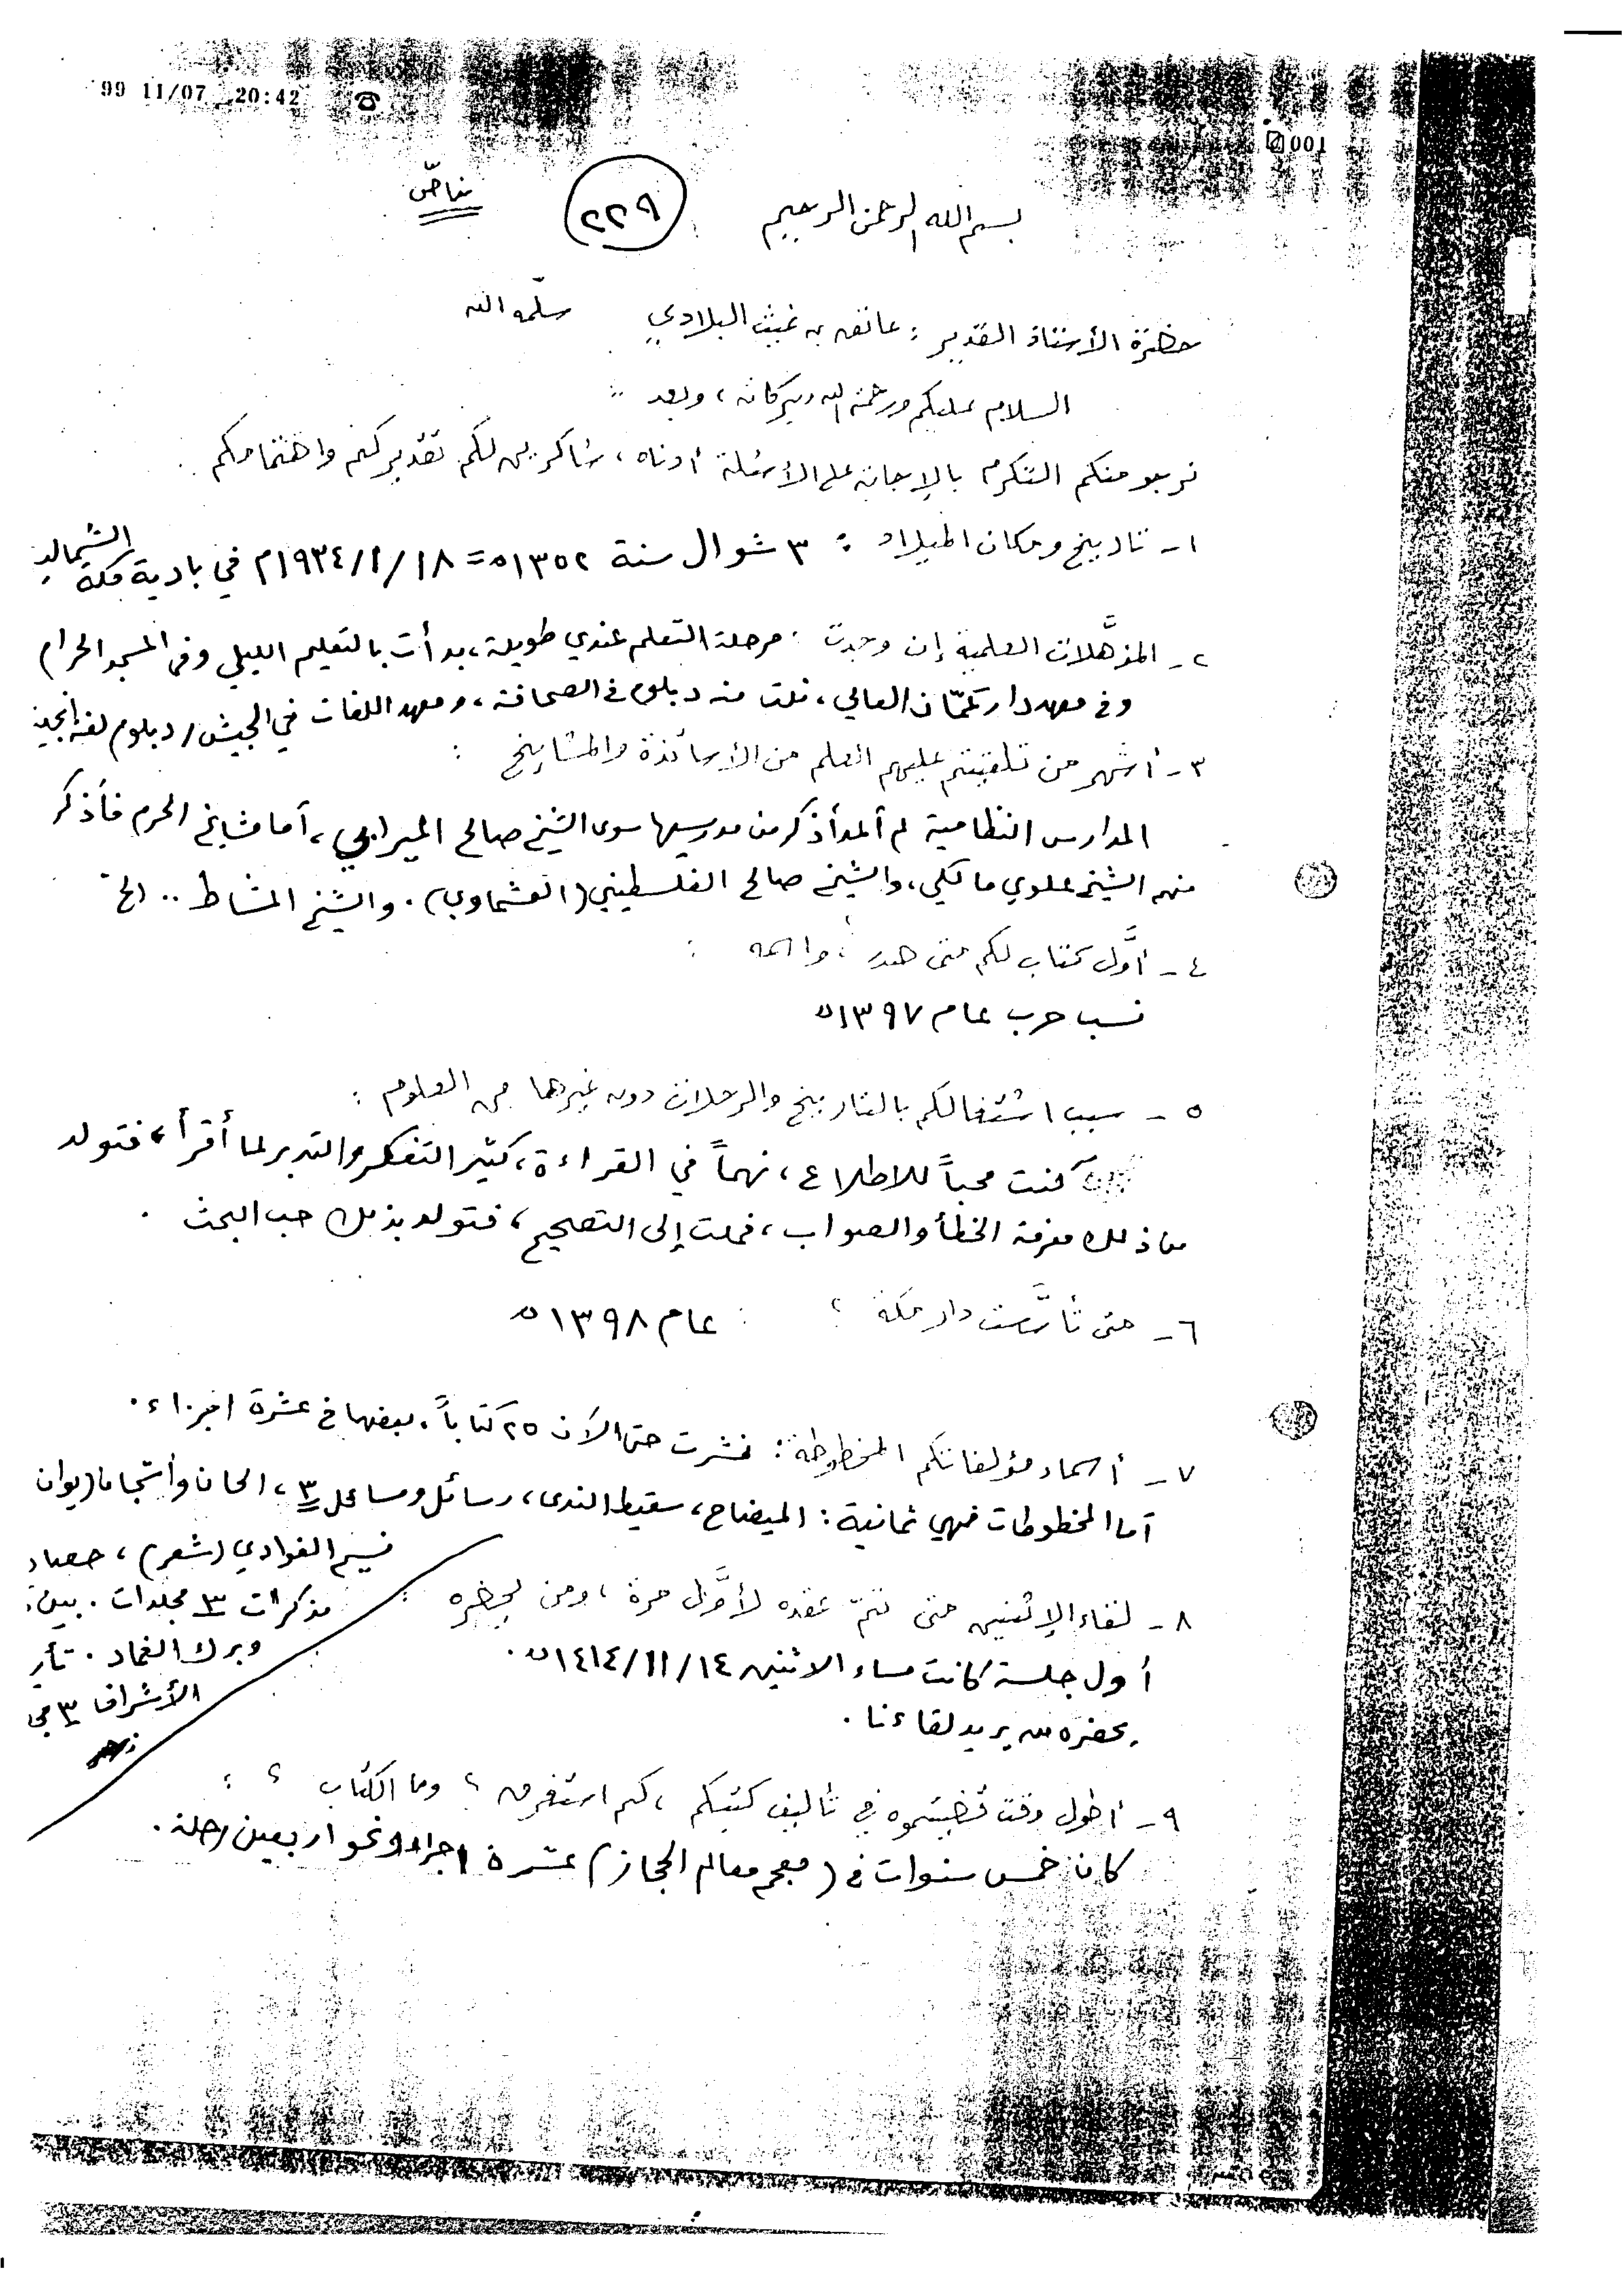 99 11/07 20:42 ☎
001
خاصّ
٢٢٩
بسم الله الرحمن الرحيم
حضرة الأستاذ القدير : عاتق بن غيث البلادي سلّمه الله
السلام عليكم ورحمة الله وبركاته ، وبعد ..
نرجو منكم التكرم بالإجابة على الأسئلة أدناه ، شاكرين لكم تقديركم واهتمامكم .
١- تاريخ ومكان الميلاد : ٣ شوال سنة ١٣٥٢هـ = ١٨/١/١٩٣٤م في بادية مكة الشمالية
٢- المؤهَّلات العلمية إن وجدت : مرحلة التعلم عندي طويلة ، بدأت بالتعليم الليلي وفي المسجد الحرام
وفي معهد دار العالي ، نلت منه دبلوم في الصحافة ، ومعهد اللغات في الجيش / دبلوم لغة
٣- أشهر من تلقيتم عليهم العلم من الأساتذة والمشايخ :
المدارس النظامية لم أعد أذكر من مدرسيها سوى الشيخ صالح ، أما مشايخ الحرم فأذكر
منهم الشيخ علوي مالكي ، والشيخ صالح الفلسطيني (العشماوي) . والشيخ المشاط .. الخ
٤- أوَّل كتاب لكم متى صدر ، واسمه :
نسب حرب عام ١٣٩٧هـ
٥- سبب اشتغالكم بالتاريخ والرحلات دون غيرها من العلوم :
كنت محباً للاطلاع ، نهماً في القراءة ، كثير التفكر والتدبر لما أقرأ ، فتولد
من ذلك معرفة الخطأ والصواب ، فملت إلى التصحيح ، فتولد بذلك حب البحث .
٦- متى تأسَّست دار مكة ؟ : عام ١٣٩٨هـ
٧- أسماء مؤلفاتكم المخطوطة : نشرت حتى الآن ٢٥ كتاباً . بعضها في عشرة أجزاء .
أما المخطوطات فهي ثمانية : الميضاح ، سقيط الندى ، رسائل ومسائل ٣ ، الحان وأشجان (ديوان
نسيم الفوادي (شعر) ، حصاد
مذكرات ٣ مجلدات . بين
وبرك الغماد .
الأشراف ٣
٨- لقاء الإثنين متى تمّ عقده لأوَّل مرة ، ومن يحضره :
أول جلسة كانت مساء الاثنين ١٤/١١/١٤١٤هـ .
يحضره من يريد لقاءنا .
٩- أطول وقت قضيتموه في تأليف كتبكم ، كم استغرق ؟ وما الكتاب ؟ :
كان خمس سنوات في (معجم معالم الحجاز) عشرة أجزاء ونحو أربعين رحلة .